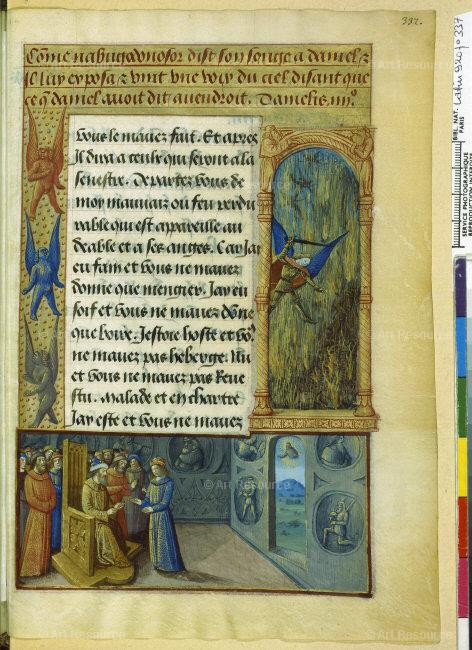 332.
Come nabugodnosor dist son songe a daniel &
Il luy exposa & vint une voix du ciel disant que
ce q daniel avoit dit avendroit. Danielis iiijo.
vous le mavez fait. Et apres
Il dira a ceulx qui seront a la
senestre. Departez vous de
moy mauvaiz ou feu perdu
rable qui est appareille au
deable et a ses anges. Car Jay
eu faim et vous ne mavez
donne que mengier. Jay eu
soif et vous ne mavez donne
que boire. Jestoie hoste et vo9
ne mavez pas heberge. Nu
et vous ne mavez pas Reve
stu. Malade et en chartre
Jay este et vous ne mavez
BIBL. NAT.
PARIS
SERVICE PHOTOGRAPHIQUE
Latin 9207
337
© Art Resource